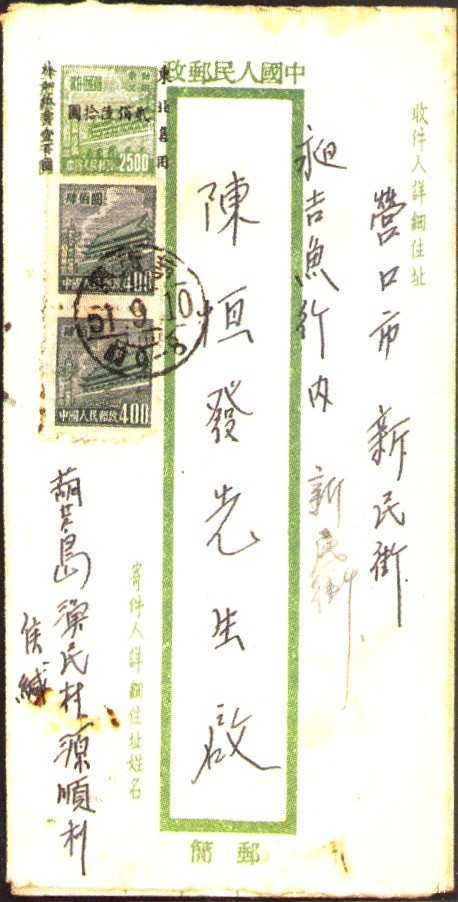 中國人民郵政
收件人詳細住址
營口市新民街
昶吉魚行內 新民街
陳恒發先生啟
東北貼用
貳佰陸拾圓
2500
肆佰圓
中國人民郵政 400
51.9.10
中國人民郵政 400
寄件人詳細住址姓名
葫芦島漁民村源順利
侯緘
郵簡